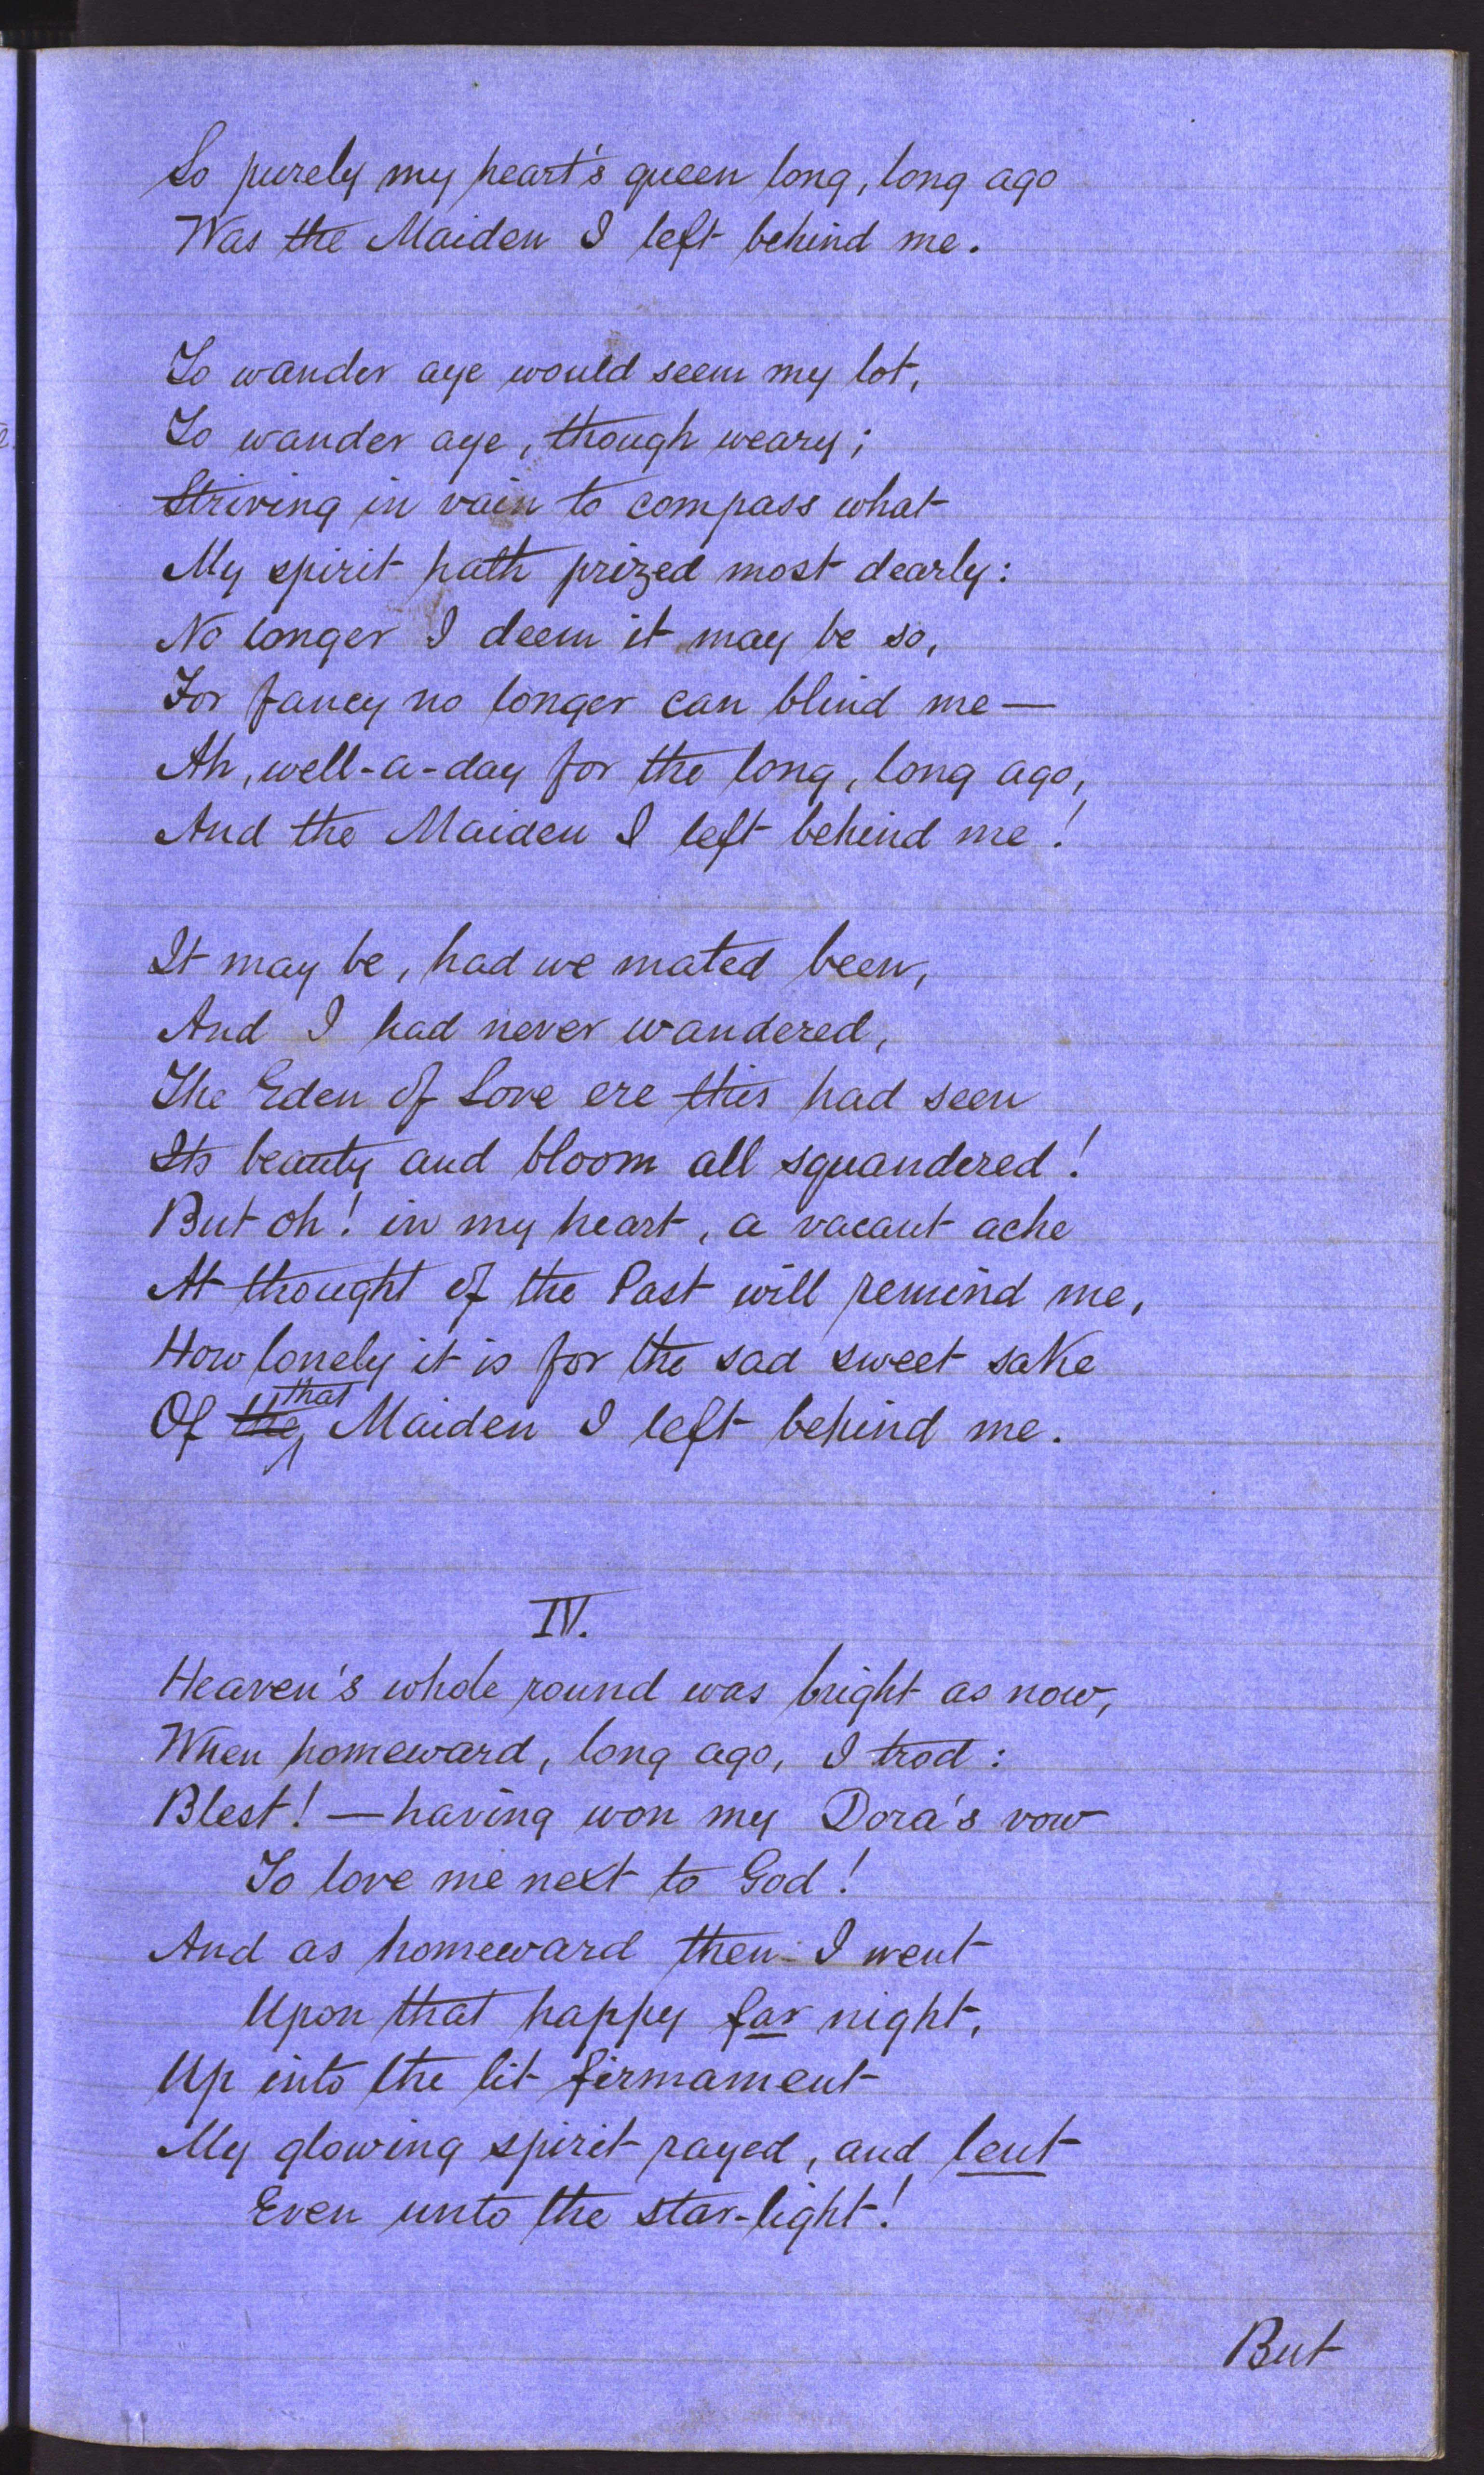 So purely my heart's queen long, long ago
Was the Maiden I left behind me.
To wander aye would seem my lot,
To wander aye, though weary;
Striving in vain to compass what
My spirit hath prized most dearly:
No longer I deem it may be so,
For fancy no longer can blind me—
Ah, well-a-day for the long, long ago,
And the Maiden I left behind me!
It may be, had we mated been,
And I had never wandered,
The Eden of Love ere this had seen
Its beauty and bloom all squandered!
But oh! in my heart, a vacant ache
At thought of the Past will remind me,
How lonely it is for the sad sweet sake
Of the that Maiden I left behind me.
IV.
Heaven's whole round was bright as now,
When homeward, long ago, I trod:
Blest!—having won my Dora's vow
To love me next to God!
And as homeward then I went
Upon that happy far night,
Up into the lit firmament
My glowing spirit rayed, and lent
Even unto the star-light!
But